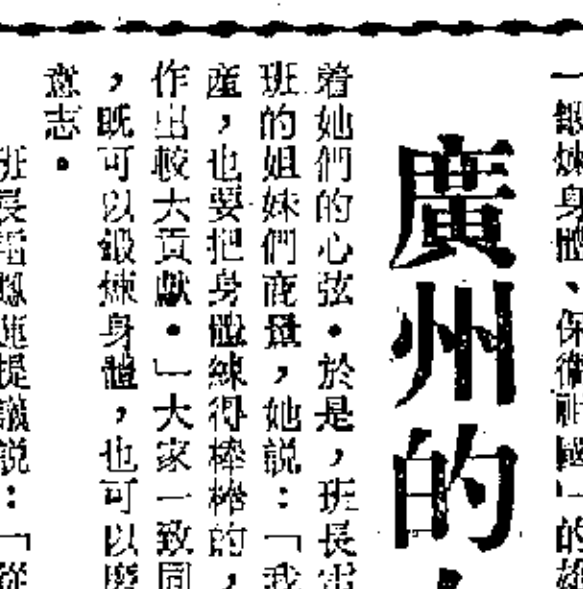 一鍛煉身體、保衛祖國」的雄
廣州的
着她們的心弦。於是，班長
班的姐妹們商量，她説：「我
產，也要把身體練得棒棒的，
作出較大貢獻。」大家一致同
，既可以鍛煉身體，也可以磨
意志。
班長 提議説：「從